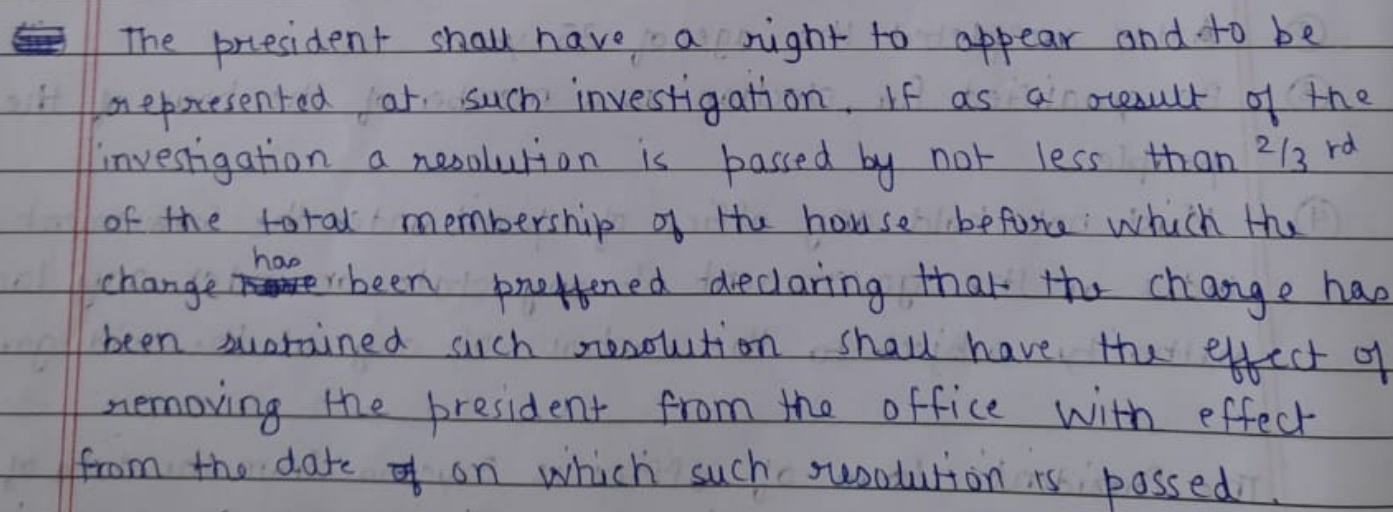 The president shall have a right to appear and to be
represented at such investigation. If as a result of the
investigation a resolution is passed by not less than 2/3 rd
of the total membership of the house before which the
change has been preffered declaring that the change has
been sustained such resolution shall have the effect of
removing the president from the office with effect
from the date on which such resolution is passed.